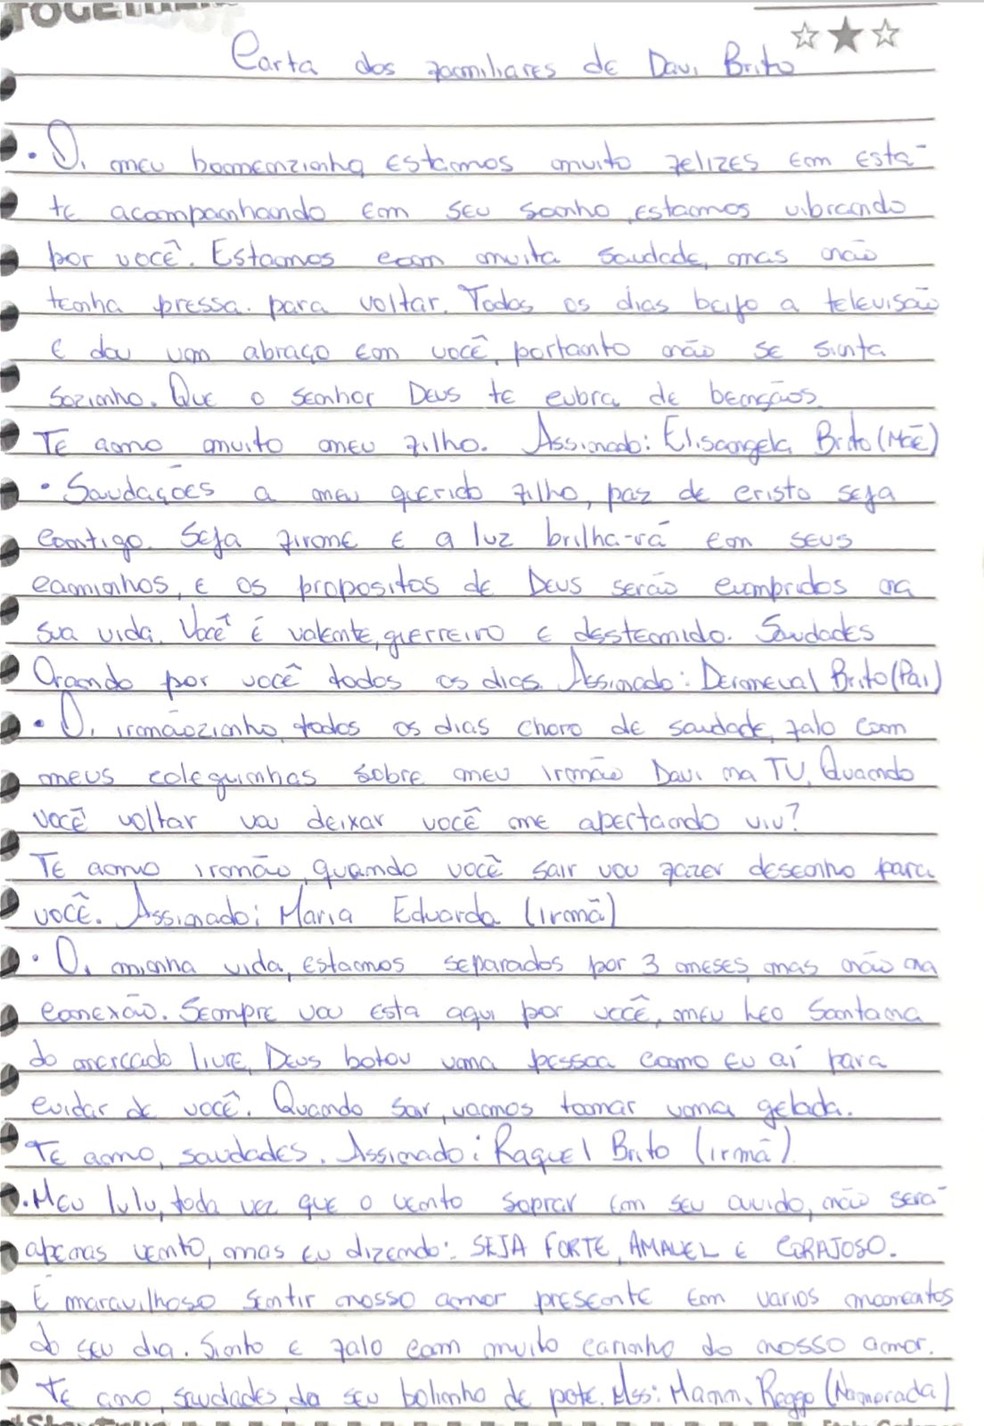 TOGETHER
Carta dos familiares de Davi Brito
• Oi meu homenzinho estamos muito felizes em está
te acompanhando em seu sonho, estamos vibrando
por você. Estamos com muita saudade, mas não
tenha pressa para voltar. Todos os dias beijo a televisão
e dou um abraço em você, portanto não se sinta
sozinho. Que o senhor Deus te cubra de bençãos.
Te amo muito meu filho. Assinado: Elisangela Brito (Mãe)
• Saudações a meu querido filho, paz de cristo seja
contigo. Seja firme e a luz brilha-rá em seus
caminhos, e os propositos de Deus serão cumpridos na
sua vida. Você é valente, guerreiro e desstemido. Saudades
Orando por você todos os dias. Assinado: Demeval Brito (Pai)
• Oi irmãozinho, todos os dias choro de saudade, falo com
meus coleguinhas sobre meu irmão Davi na TV. Quando
você voltar vou deixar você me apertando viu?
Te amo irmão, quando você sair vou fazer desenho para
você. Assinado: Maria Eduarda (irmã)
• Oi minha vida, estamos separados por 3 meses, mas não na
conexão. Sempre vou esta aqui por você, meu Leo Santana
do mercado livre, Deus botou uma pessoa como eu aí para
cuidar de você. Quando sair, vamos tomar uma gelada.
Te amo, saudades. Assinado: Raquel Brito (irmã)
• Meu lulu, toda vez que o vento soprar em seu ouvido, não será
apenas vento, mas eu dizendo: SEJA FORTE, AMAVEL E CORAJOSO.
É maravilhoso sentir nosso amor presente em varios momentos
do seu dia. Sinto e falo com muito carinho do nosso amor.
Te amo, saudades do seu bolinho de pote. Ass: Mann. Rego (Namorada)